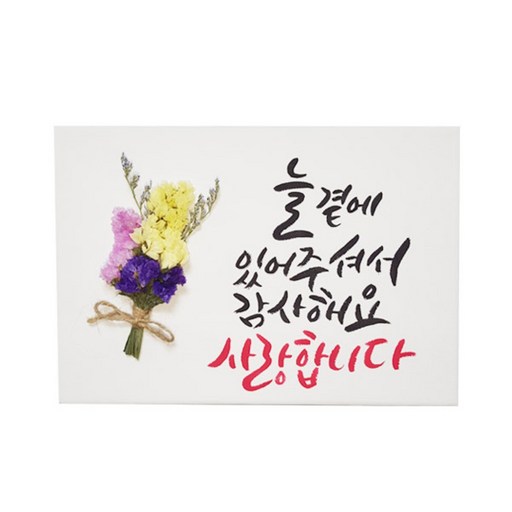 늘 곁에
있어주셔서
감사해요
사랑합니다